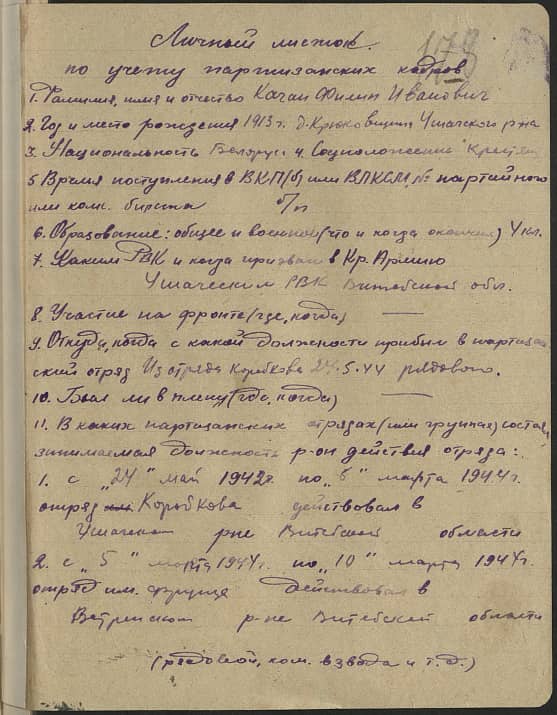 Личный листок.
179
по учету партизанских кадров
1. Фамилия, имя и отчество Каган Филип Иванович
2. Год и место рождения 1913 г. д. Крюковщина Ушачского р-на
3. Национальность Белорус 4. Соцположение Крестян
5 Время поступления в ВКП(б) или ВЛКСМ, № партийного
или комс. билета б/п
6. Образование: общее и военное (что и когда окончил) 4 кл.
7. Каким РВК и когда призван в Кр. Армию
Ушачским РВК Витебской обл.
8. Участие на фронте (где, когда) —
9. Откуда, когда с какой должности прибыл в партизан
ский отряд Из отряда Коробкова 24.5.44 рядового.
10. Был ли в плену (где, когда) —
11. В каких партизанских отрядах (или группах) состоял
занимаемая должность р-он действия отряда:
1. с „24" май 1942 г. по „ " марта 1944 г.
отряд Коробкова действовал в
Ушачском р-не Витебской области
2. с „5" марта 1944 г. по „10" марта 1944 г.
отряд им. Фрунзе действовал в
Ветринском р-не Витебской области
(рядовой, ком. взвода и т. д.)